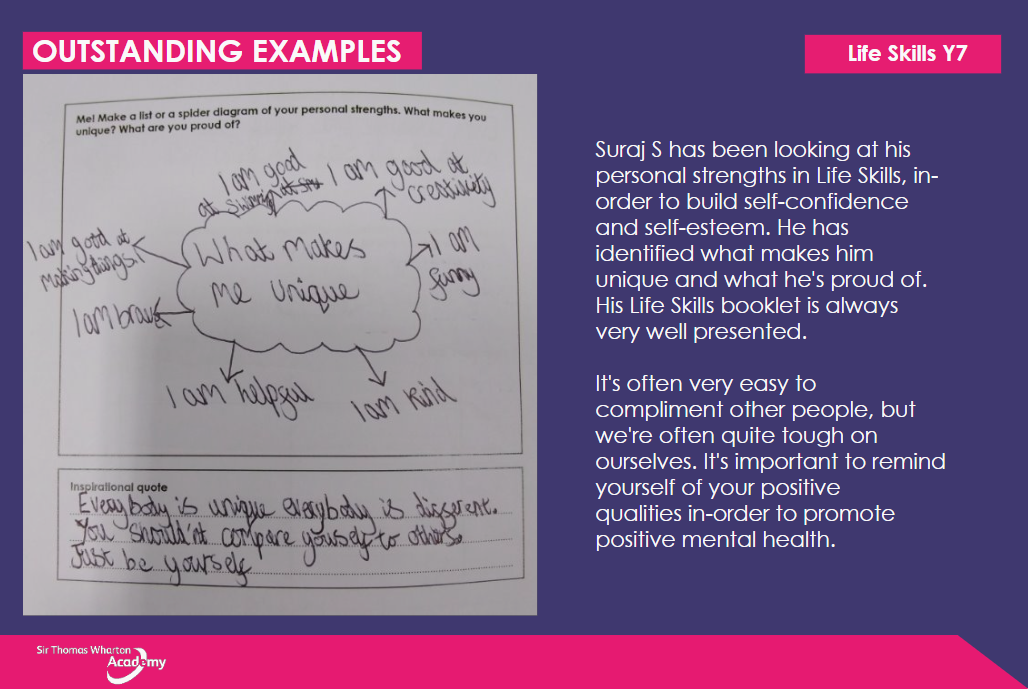 OUTSTANDING EXAMPLES
Life Skills Y7
Me! Make a list or a spider diagram of your personal strengths. What makes you
unique? What are you proud of?
I am good
at swimming
I am good at
creativity
I am good at
making things.
What makes
me unique
I am
funny
I am brave
I am helpful
I am kind
Inspirational quote
Everybody is unique everybody is different.
You should'nt compare yourself to others.
Just be yourself
Suraj S has been looking at his
personal strengths in Life Skills, in-
order to build self-confidence
and self-esteem. He has
identified what makes him
unique and what he's proud of.
His Life Skills booklet is always
very well presented.
It's often very easy to
compliment other people, but
we're often quite tough on
ourselves. It's important to remind
yourself of your positive
qualities in-order to promote
positive mental health.
Sir Thomas Wharton
Academy